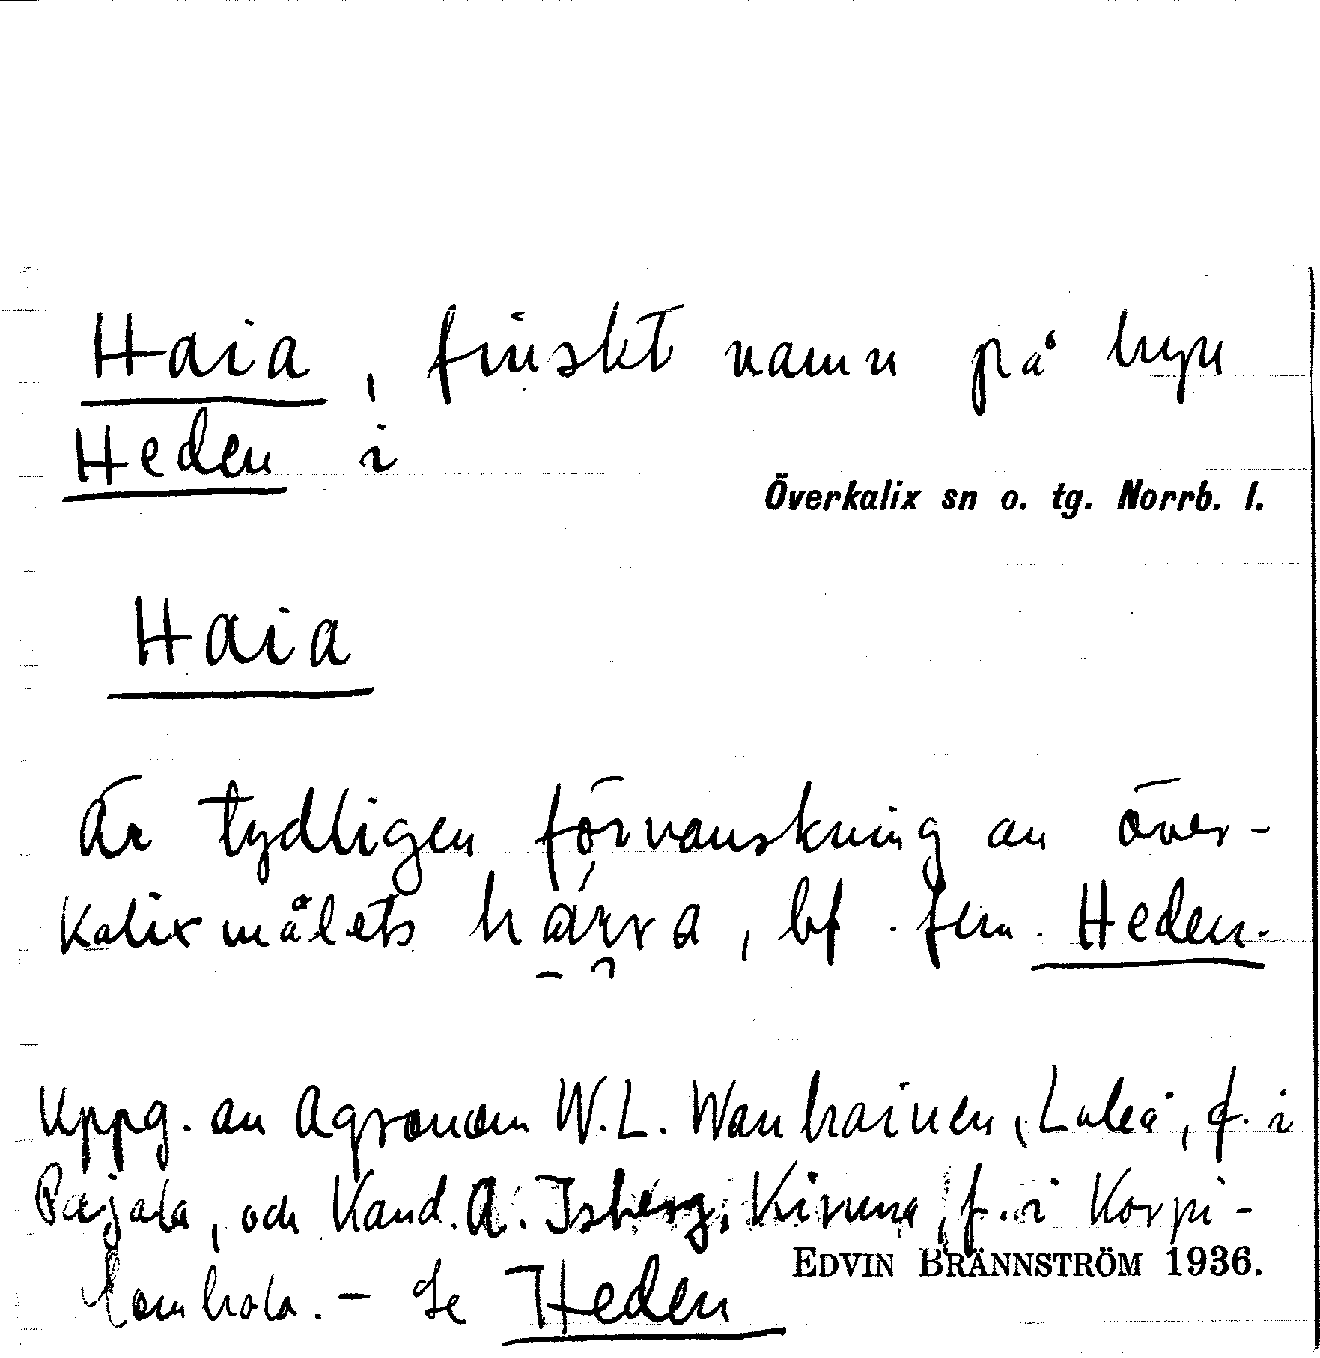 Haia, finskt namn på byn
Heden i
Överkalix sn o. tg. Norrb. l.
Haia
Är tydligen förvanskning av över-
kalixmålets härra, bf. fem. Heden.
Uppg. av Agronom W.L. Wanhainen, Luleå, f. i
Pajala, och Kand. A. Isberg, Kiruna, f. i Korpi-
lombolo. - Se Heden
EDVIN BRÄNNSTRÖM 1936.